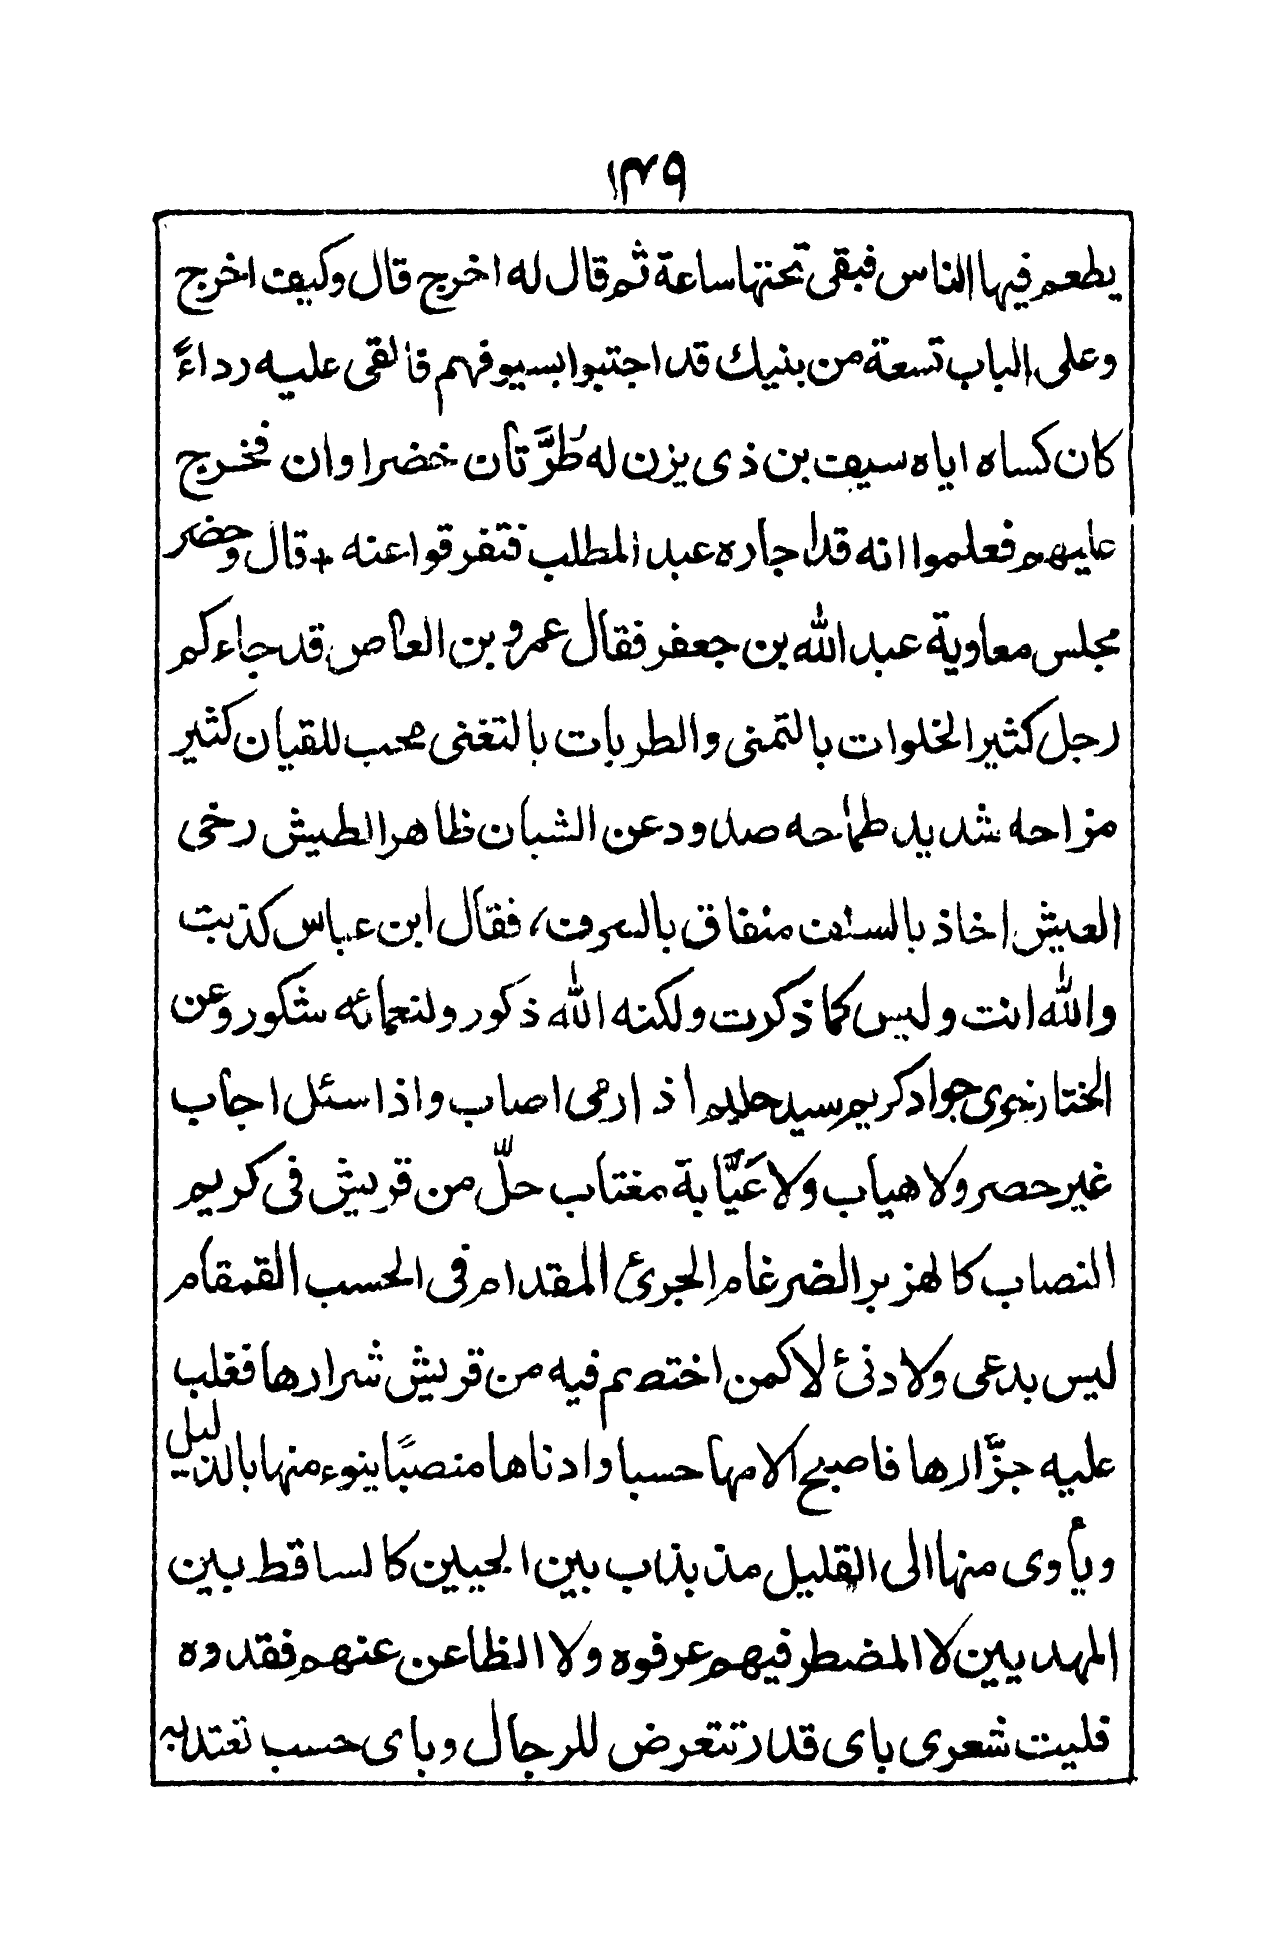 ١٣٩
يطعم فيها الناس فبقى تحتها ساعة ثم قال له اخرج قال وكيف اخرج
وعلى الباب تسعة من بنيك قد اجتبوا بسيوفهم فألقى عليه رداءً
كان كساه اياه سيف بن ذى يزن له طُرَّتان خضراوان فخرج
عليهم فعلموا انه قد اجاره عبد المطلب فتفرقوا عنه + قال وحضر
مجلس معاوية عبد الله بن جعفر فقال عمرو بن العاص قد جاءكم
رجل كثير الخلوات بالتمنى والطربات بالتغنى محب للقيان كثير
مزاحه شديد طماحه صدود عن الشبان ظاهر الطيش رخى
العيش اخاذ بالسلف منفاق بالسرف، فقال ابن عباس كذبت
والله انت وليس كما ذكرت ولكنه الله ذكور ولنعمائه شكور وعن
الخنا زجور جواد كريم سيد حليم اذا رمى اصاب واذا سئل اجاب
غير حصر ولا هياب ولا عَيَّابة مغتاب حلّ من قريش فى كريم
النصاب كالهزبر الضرغام الجرئ المقدام فى الحسب القمقام
ليس بدعى ولا دنئ لا كمن اختصم فيه من قريش شرارها فغلب
عليه جزَّارها فاصبح ألامها حسبا وادناها منصبًا ينوء منها بالذليل
ويأوى منها الى القليل مذبذاب بين الحيين كالساقط بين
المهديين لا المضطر فيهم عرفوه ولا الظاعن عنهم فقدوه
فليت شعرى باى قدر تتعرض للرجال وباى حسب تعتد به